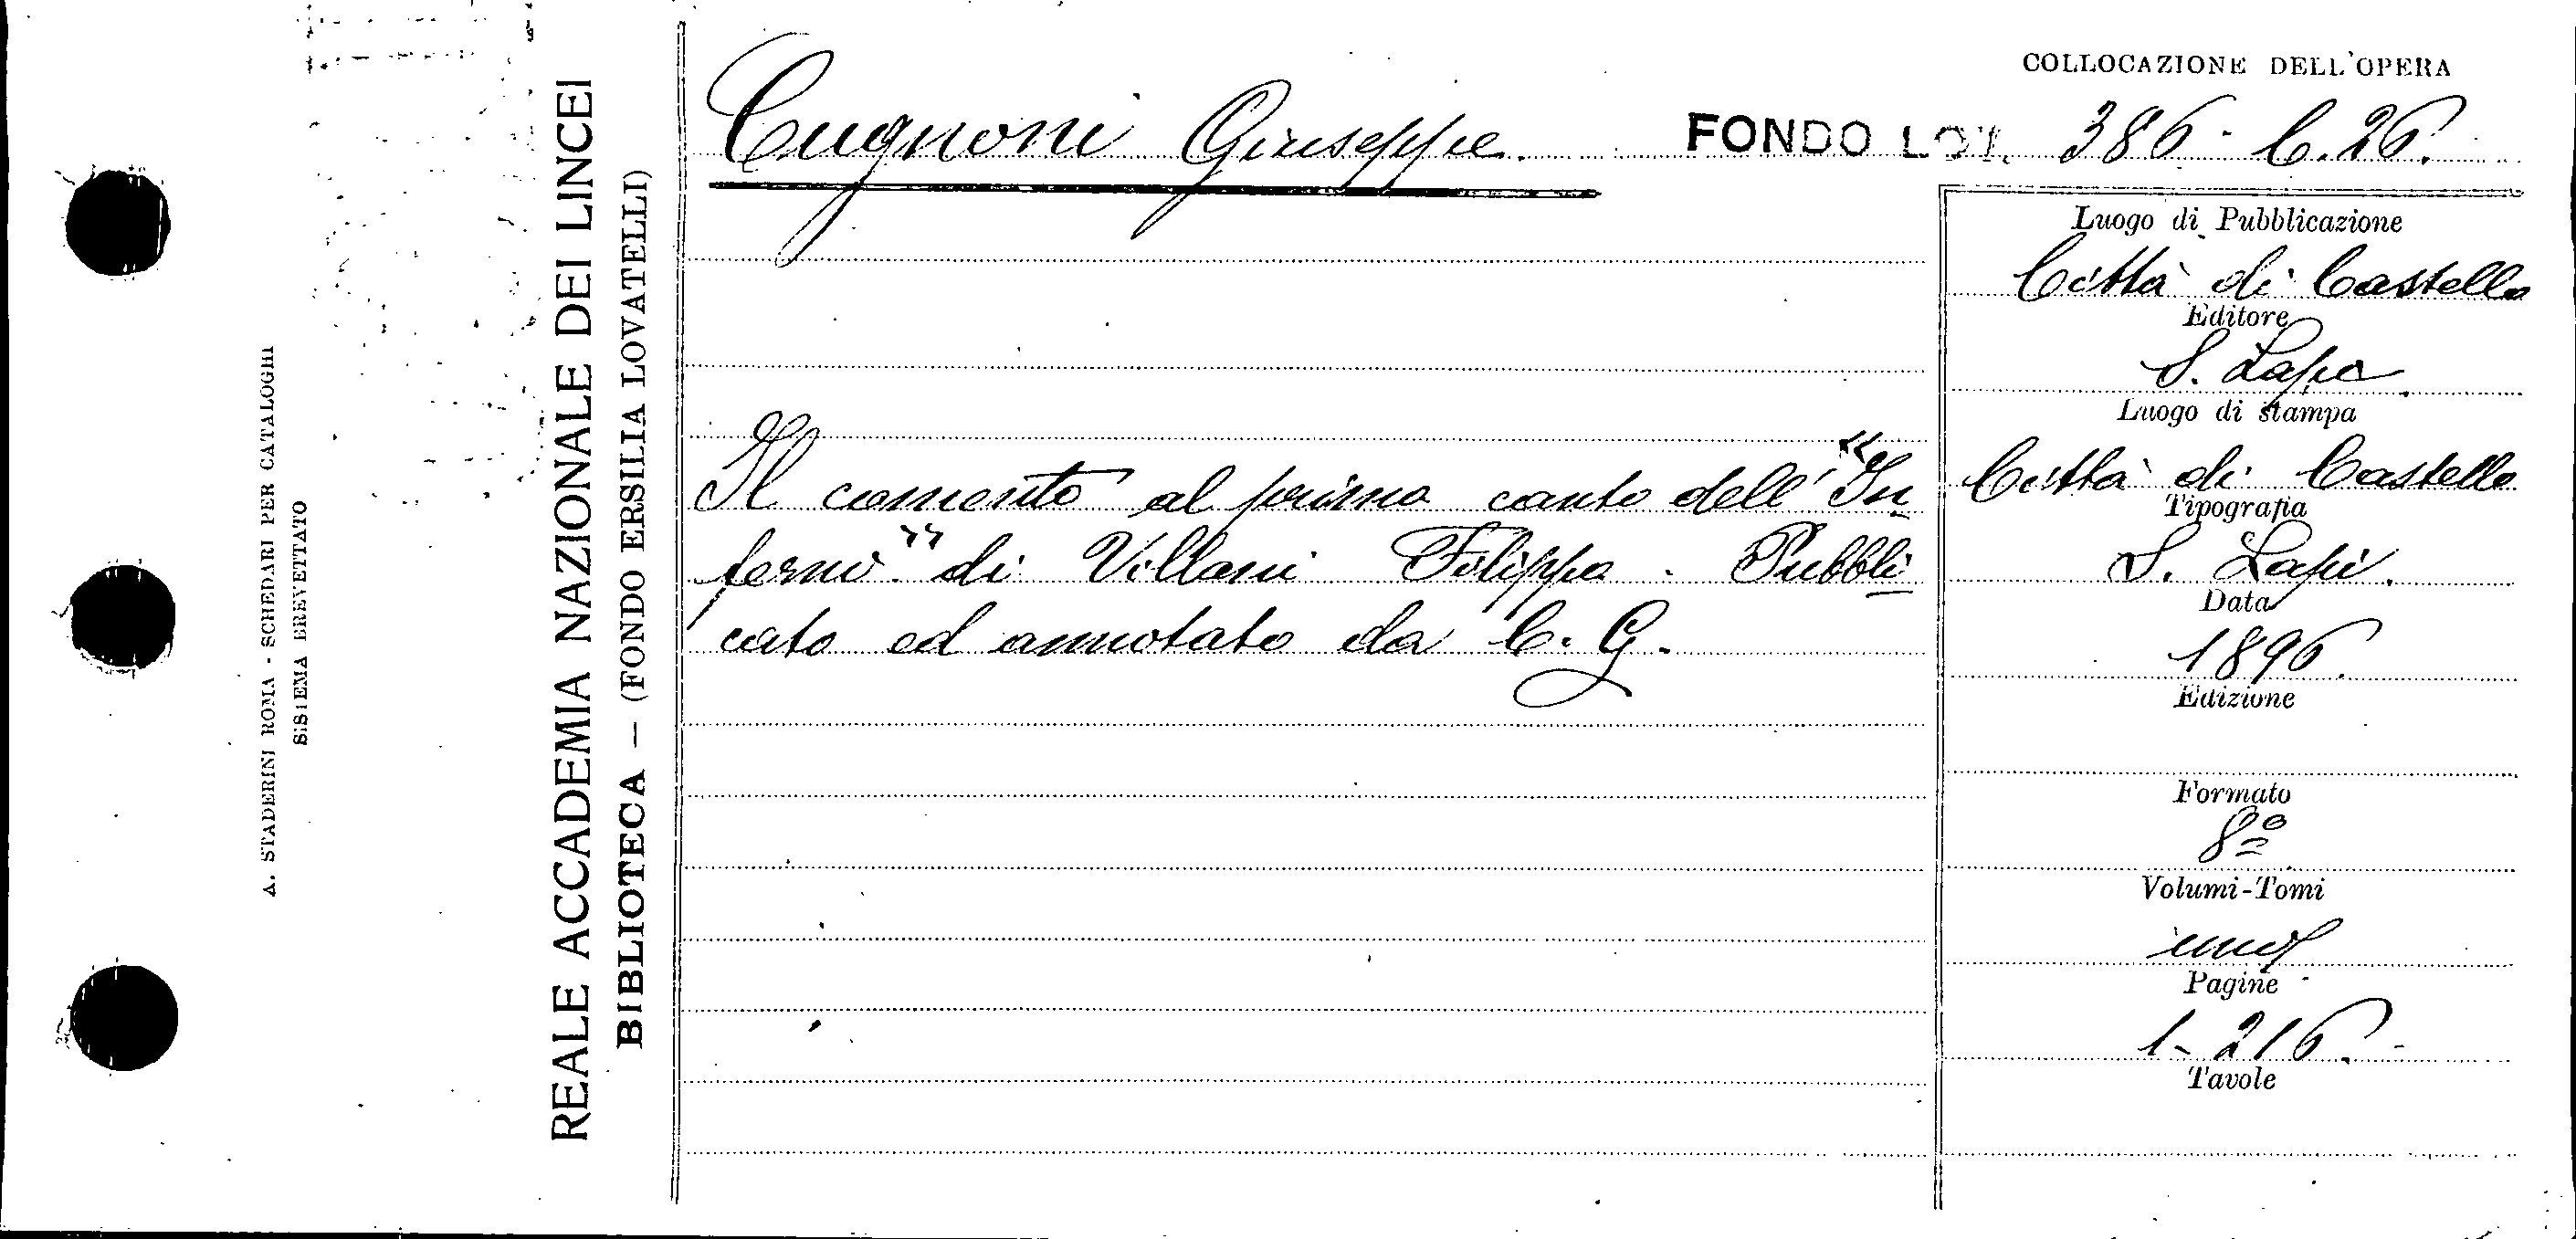 A. STADERINI ROMA - SCHEDARI PER CATALOGHI
SISTEMA BREVETTATO
REALE ACCADEMIA NAZIONALE DEI LINCEI
BIBLIOTECA — (FONDO ERSILIA LOVATELLI)
COLLOCAZIONE DELL'OPERA
Cugnoni Giuseppe. FONDO LOV. 386. C. 26.
Il comento al primo canto dell' "In
ferno" di Villani Filippo. Pubbli
cato ed annotato da C. G.
Luogo di Pubblicazione
Città di Castello
Editore
S. Lapi
Luogo di stampa
Città di Castello
Tipografia
S. Lapi.
Data
1896.
Edizione
Formato
8º
Volumi-Tomi
uno
Pagine
1-216.
Tavole